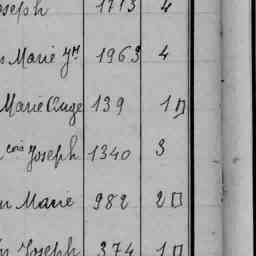 oseph 1713 4
s Marie Jh 1963 4
Marie Ange 139 1
çois Joseph 1340 3
n Marie 982 2
n Joseph 374 1